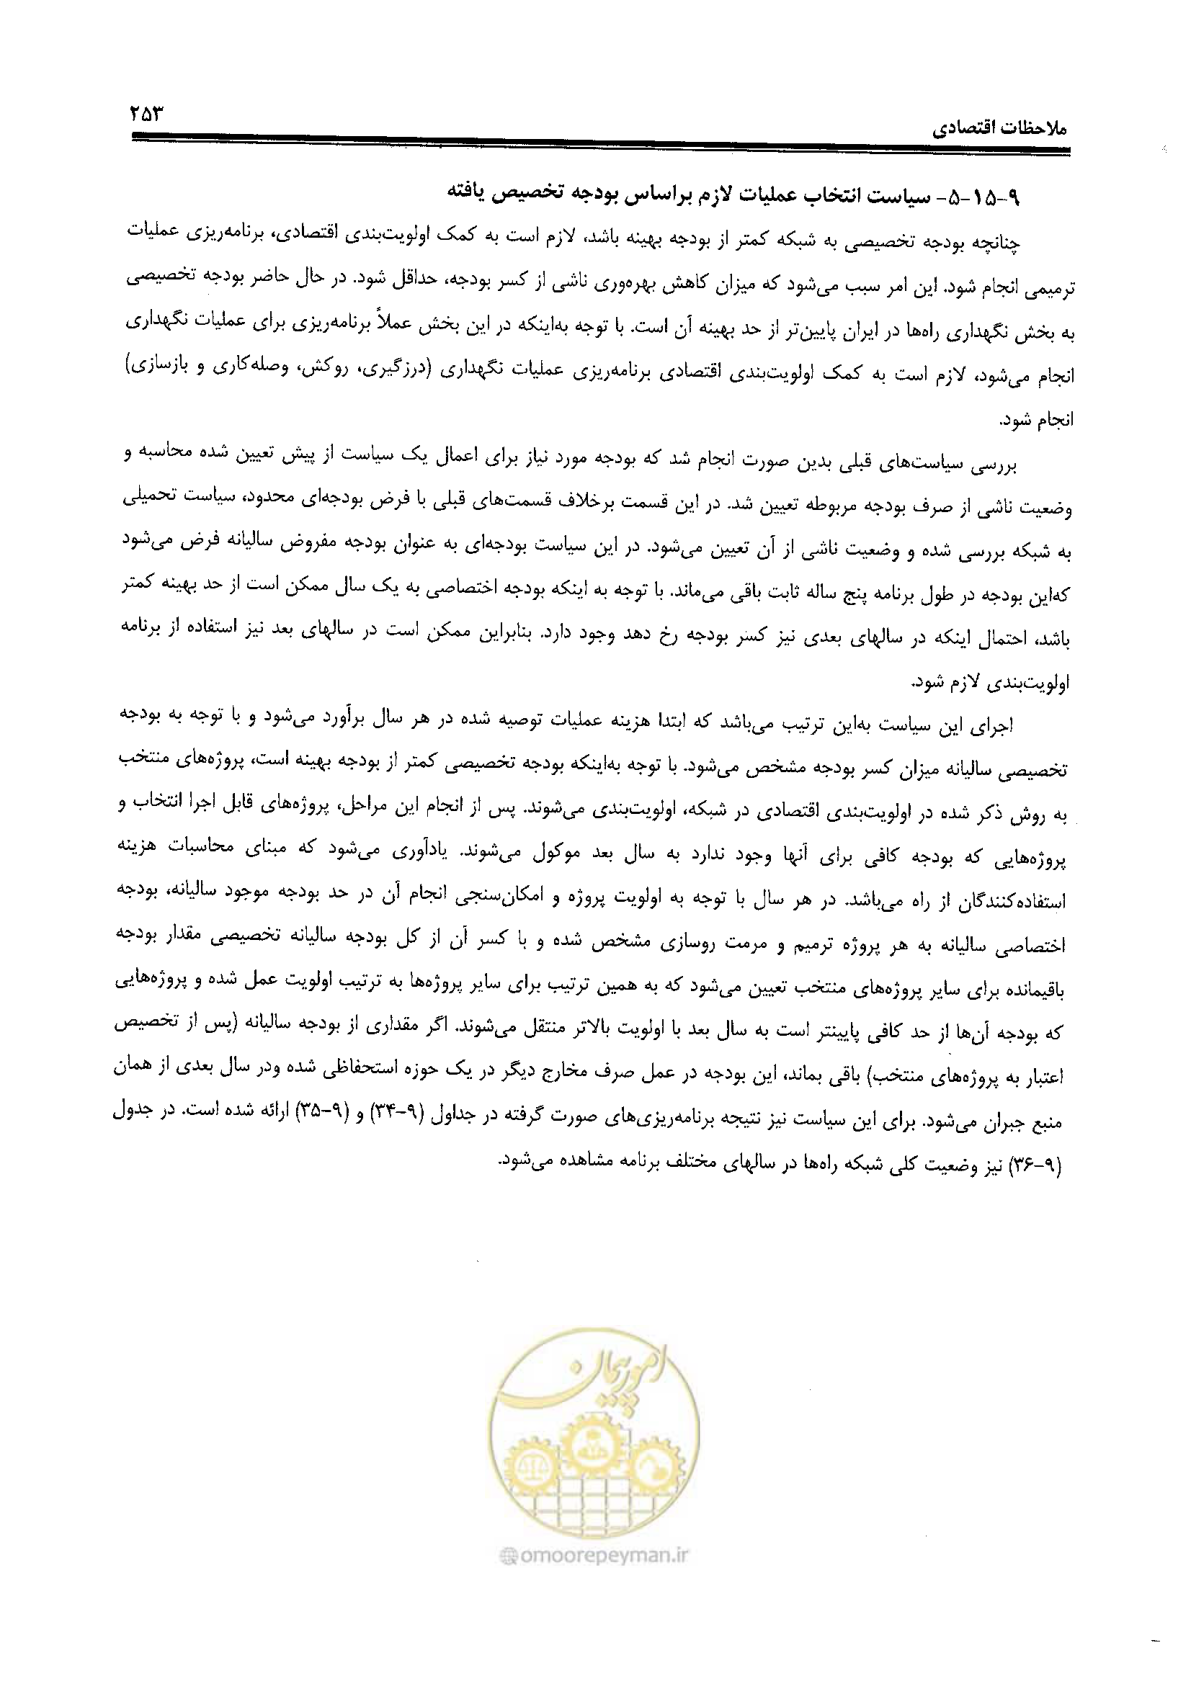 ملاحظات اقتصادی
۲۵۳
۹-۱۵-۵- سیاست انتخاب عملیات لازم براساس بودجه تخصیص یافته
چنانچه بودجه تخصیصی به شبکه کمتر از بودجه بهینه باشد، لازم است به کمک اولویت‌بندی اقتصادی، برنامه‌ریزی عملیات
ترمیمی انجام شود. این امر سبب می‌شود که میزان کاهش بهره‌وری ناشی از کسر بودجه، حداقل شود. در حال حاضر بودجه تخصیصی
به بخش نگهداری راه‌ها در ایران پایین‌تر از حد بهینه آن است. با توجه به‌اینکه در این بخش عملاً برنامه‌ریزی برای عملیات نگهداری
انجام می‌شود، لازم است به کمک اولویت‌بندی اقتصادی برنامه‌ریزی عملیات نگهداری (درزگیری، روکش، وصله‌کاری و بازسازی)
انجام شود.
بررسی سیاست‌های قبلی بدین صورت انجام شد که بودجه مورد نیاز برای اعمال یک سیاست از پیش تعیین شده محاسبه و
وضعیت ناشی از صرف بودجه مربوطه تعیین شد. در این قسمت برخلاف قسمت‌های قبلی با فرض بودجه‌ای محدود، سیاست تحمیلی
به شبکه بررسی شده و وضعیت ناشی از آن تعیین می‌شود. در این سیاست بودجه‌ای به عنوان بودجه مفروض سالیانه فرض می‌شود
که‌این بودجه در طول برنامه پنج ساله ثابت باقی می‌ماند. با توجه به اینکه بودجه اختصاصی به یک سال ممکن است از حد بهینه کمتر
باشد، احتمال اینکه در سالهای بعدی نیز کسر بودجه رخ دهد وجود دارد. بنابراین ممکن است در سالهای بعد نیز استفاده از برنامه
اولویت‌بندی لازم شود.
اجرای این سیاست به‌این ترتیب می‌باشد که ابتدا هزینه عملیات توصیه شده در هر سال برآورد می‌شود و با توجه به بودجه
تخصیصی سالیانه میزان کسر بودجه مشخص می‌شود. با توجه به‌اینکه بودجه تخصیصی کمتر از بودجه بهینه است، پروژه‌های منتخب
به روش ذکر شده در اولویت‌بندی اقتصادی در شبکه، اولویت‌بندی می‌شوند. پس از انجام این مراحل، پروژه‌های قابل اجرا انتخاب و
پروژه‌هایی که بودجه کافی برای آنها وجود ندارد به سال بعد موکول می‌شوند. یادآوری می‌شود که مبنای محاسبات هزینه
استفاده‌کنندگان از راه می‌باشد. در هر سال با توجه به اولویت پروژه و امکان‌سنجی انجام آن در حد بودجه موجود سالیانه، بودجه
اختصاصی سالیانه به هر پروژه ترمیم و مرمت روسازی مشخص شده و با کسر آن از کل بودجه سالیانه تخصیصی مقدار بودجه
باقیمانده برای سایر پروژه‌های منتخب تعیین می‌شود که به همین ترتیب برای سایر پروژه‌ها به ترتیب اولویت عمل شده و پروژه‌هایی
که بودجه آن‌ها از حد کافی پایینتر است به سال بعد با اولویت بالاتر منتقل می‌شوند. اگر مقداری از بودجه سالیانه (پس از تخصیص
اعتبار به پروژه‌های منتخب) باقی بماند، این بودجه در عمل صرف مخارج دیگر در یک حوزه استحفاظی شده ودر سال بعدی از همان
منبع جبران می‌شود. برای این سیاست نیز نتیجه برنامه‌ریزی‌های صورت گرفته در جداول (۹-۳۴) و (۹-۳۵) ارائه شده است. در جدول
(۹-۳۶) نیز وضعیت کلی شبکه راه‌ها در سالهای مختلف برنامه مشاهده می‌شود.
امور پیمان
@omoorepeyman.ir